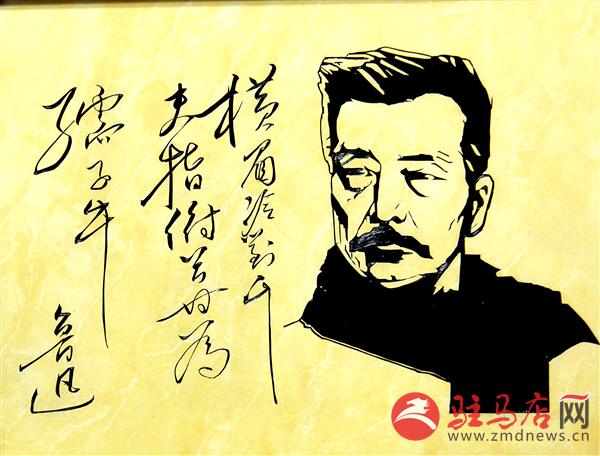 橫眉冷對千
夫指俯首甘為
孺子牛
魯迅
驻马店网
www.zmdnews.cn